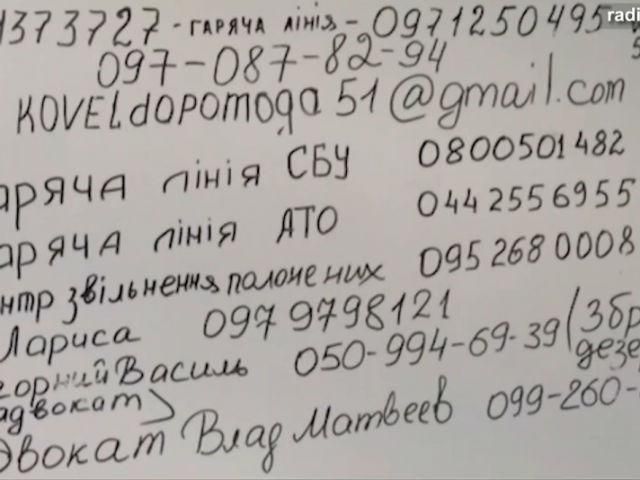 radi
1373727 - ГАРЯЧА лінія - 0971250495
097-087-82-94
KOVELdОPOMOgа51@gmail.com
аРЯЧА лінія СБУ 0800501482
аРЯЧА лінія АТО 0442556955
нтр звільнення полонених 0952680008
Лариса 0979798121
горний Василь 050-994-69-39 (Збр
адвокат) дезе
двокат Влад Матвеев 099-260-